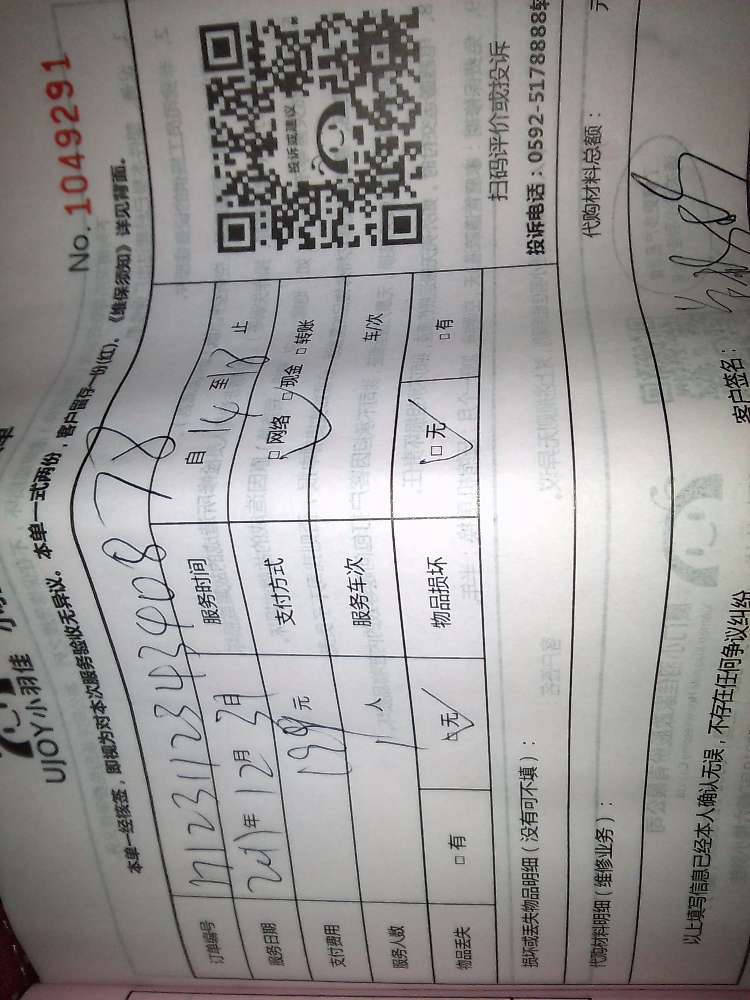 UJOY小羽佳
No. 1049291
本单一经核签，即视为对本次服务验收无异议。 本单一式两份，客户留存一份(红)。《维保须知》详见背面。
订单编号
服务日期 年 12月 31日 服务时间 自 14 至 18 止
支付费用 199 元 支付方式 □网络 □现金 □转账
服务人数 1 人 服务车次 车/次
物品丢失 □有 □无 物品损坏 □无 □有
投诉或建议
扫码评价或投诉
投诉电话：0592-5178888转
损坏或丢失物品明细（没有可不填）：
代购材料明细（维修业务）： 代购材料总额： 元
以上填写信息已经本人确认无误，不存在任何争议纠纷 客户签名：